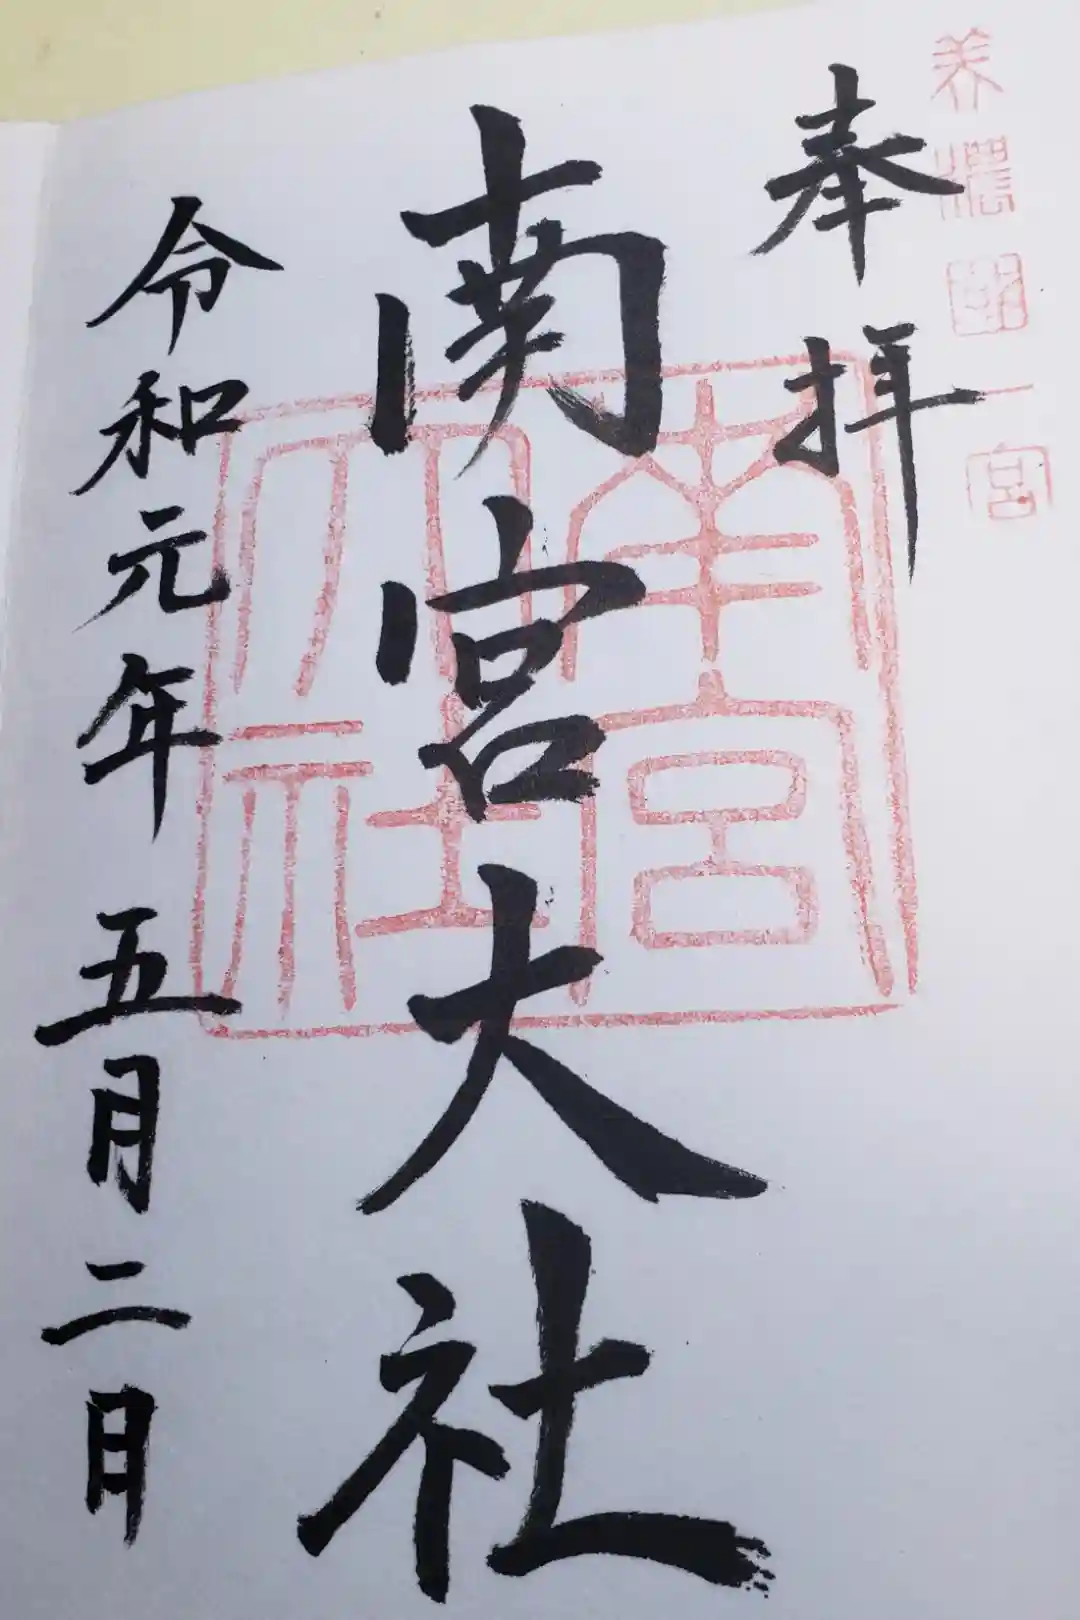 美濃國一宮
奉拝
南宮大社
南宮大社
令和元年 五月二日